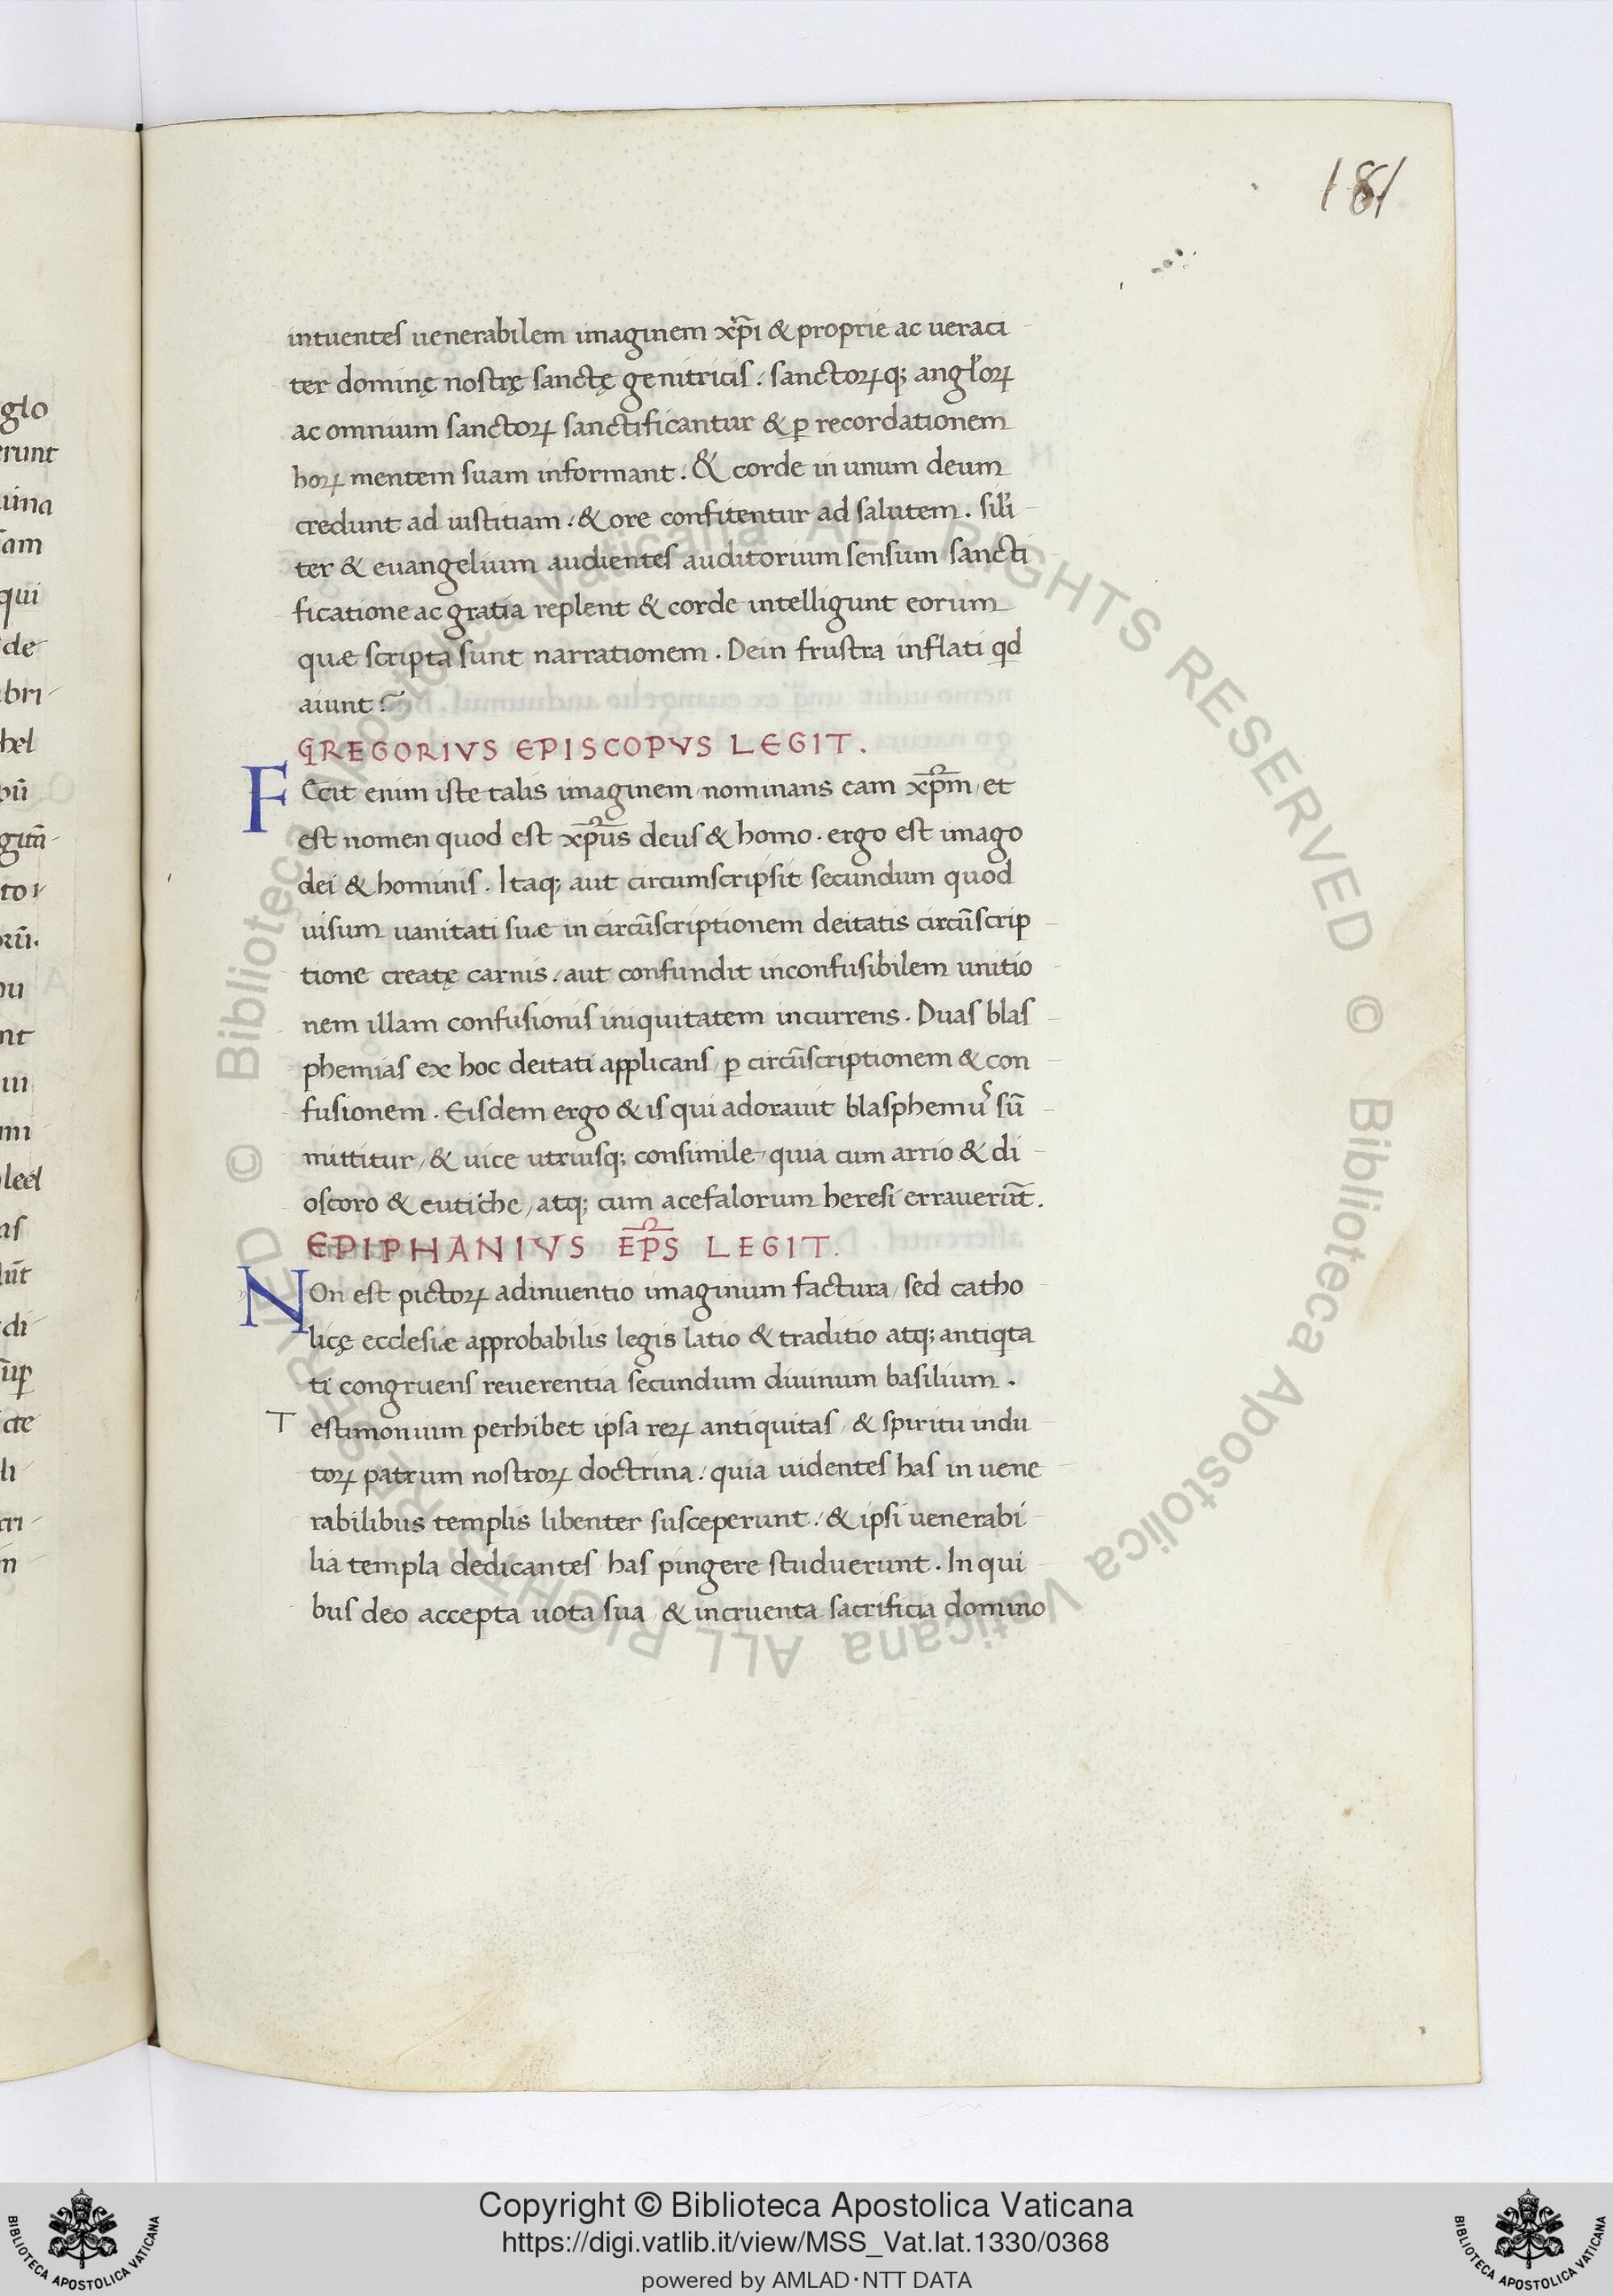 181
intuentes uenerabilem imaginem xp̄i & proprie ac ueraci
ter dominę nostrę sanctę genitricis. sanctorꝝq; angl'orꝝ
ac omnium sanctorꝝ sanctificantur & ꝑ recordationem
horꝝ mentem suam informant. & corde in unum deum
credunt ad iustitiam. & ore confitentur ad salutem. sili
ter & euangelium audientes auditorium sensum sancti
ficatione ac gratia replent & corde intelligunt eorum
quæ scripta sunt narrationem. Dein frustra inflati qd
aiunt
GREGORIVS EPISCOPVS LEGIT.
FEcit enim iste talis imaginem nominans eam xp̄m, et
est nomen quod est xp̄us deus & homo. ergo est imago
dei & hominis. Itaq; aut circumscripsit secundum quod
uisum uanitati suæ in circūscriptionem deitatis circūscrip
tione creatę carnis. aut confundit inconfusibilem unitio
nem illam confusionis iniquitatem incurrens. Duas blas
phemias ex hoc deitati applicans, ꝑ circūscriptionem & con
fusionem. Eisdem ergo & is qui adorauit blasphemus sū
mittitur, & uice utriusq; consimile, quia cum arrio & di
oscoro & eutiche, atq; cum acefalorum heresi errauerūt.
EPIPHANIVS EP̄S LEGIT.
NOn est pictorꝝ adinuentio imaginum factura, sed catho
licę ecclesiæ approbabilis legis latio & traditio atq; antiqta
ti congruens reuerentia secundum diuinum basilium.
Testimonium perhibet ipsa rerꝝ antiquitas, & spiritu indu
torꝝ patrum nostrorꝝ doctrina. quia uidentes has in uene
rabilibus templis libenter susceperunt. & ipsi uenerabi
lia templa dedicantes has pingere studuerunt. In qui
bus deo accepta uota sua, & incruenta sacrificia domino
Copyright © Biblioteca Apostolica Vaticana
https://digi.vatlib.it/view/MSS_Vat.lat.1330/0368
powered by AMLAD·NTT DATA
BIBLIOTECA APOSTOLICA VATICANA
BIBLIOTECA APOSTOLICA VATICANA